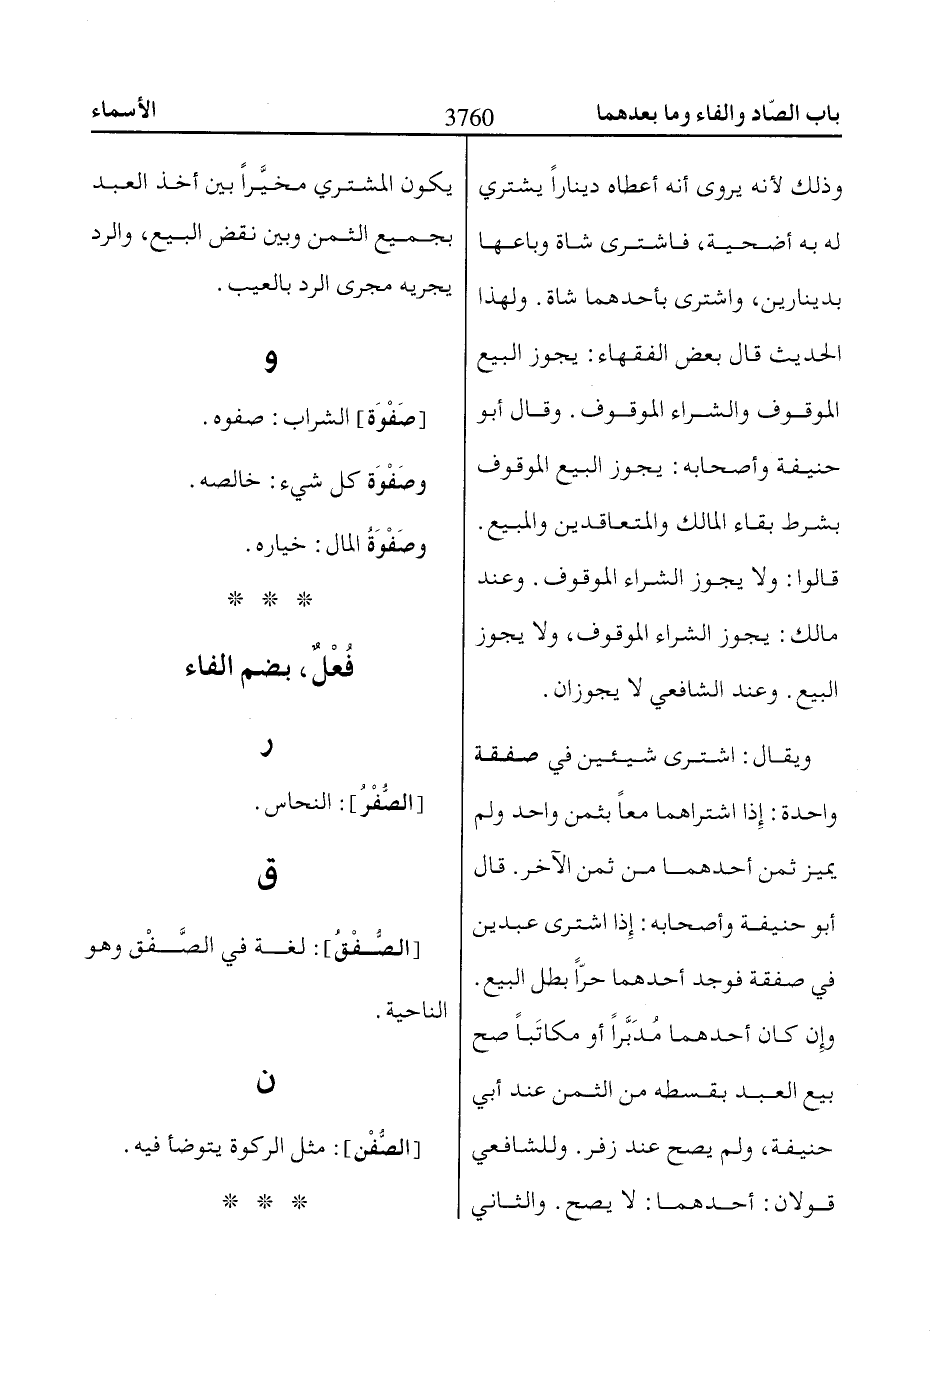 باب الصّاد والفاء وما بعدهما
3760
الأسماء
وذلك لأنه يروى أنه أعطاه ديناراً يشتري
له به أضحية، فاشترى شاة وباعها
بدينارين، واشترى بأحدهما شاة. ولهذا
الحديث قال بعض الفقهاء: يجوز البيع
الموقوف والشراء الموقوف. وقال أبو
حنيفة وأصحابه: يجوز البيع الموقوف
بشرط بقاء المالك والمتعاقدين والمبيع.
قالوا: ولا يجوز الشراء الموقوف. وعند
مالك: يجوز الشراء الموقوف، ولا يجوز
البيع. وعند الشافعي لا يجوزان.
ويقال: اشترى شيئين في صفقة
واحدة: إذا اشتراهما معاً بثمن واحد ولم
يميز ثمن أحدهما من ثمن الآخر. قال
أبو حنيفة وأصحابه: إذا اشترى عبدين
في صفقة فوجد أحدهما حرّاً بطل البيع.
وإن كان أحدهما مُدَبَّراً أو مكاتَباً صح
بيع العبد بقسطه من الثمن عند أبي
حنيفة، ولم يصح عند زفر. وللشافعي
قولان: أحدهما: لا يصح. والثاني
يكون المشتري مخيَّراً بين أخذ العبد
بجميع الثمن وبين نقض البيع، والرد
يجريه مجرى الرد بالعيب.
و
[صَفْوَة] الشراب: صفوه.
وصَفْوَة كل شيء: خالصه.
وصَفْوَةُ المال: خياره.
* * *
فُعْلٌ، بضم الفاء
ر
[الصُّفْرُ]: النحاس.
ق
[الصُّفْقُ]: لغة في الصَّفْق وهو
الناحية.
ن
[الصُّفْن]: مثل الركوة يتوضأ فيه.
* * *